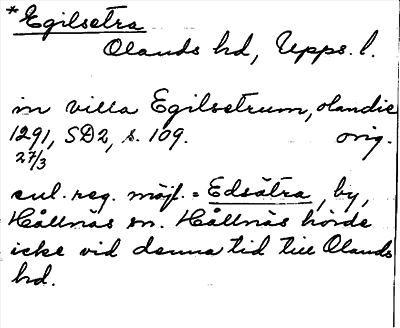 *Egilsetra
Olands hd, Upps. l.
in villa Egilsetrum, olandie
1291, SD2, s. 109. orig.
27/3
enl. reg. möjl. = Edsätra, by,
Hållnäs sn. Hållnäs hörde
icke vid denna tid till Olands
hd.